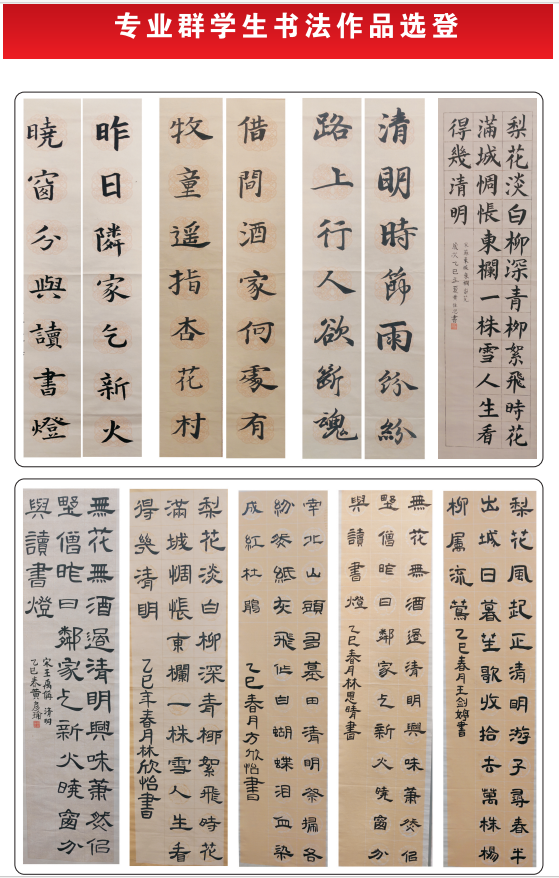 专业群学生书法作品选登
梨花淡白柳深青柳絮飛時花
滿城惆悵東欄一株雪人生看
得幾清明
清明時節雨紛紛
路上行人欲斷魂
借問酒家何處有
牧童遥指杏花村
昨日隣家乞新火
曉窗分與讀書燈
梨花風起正清明游子尋春半
出城日暮笙歌收拾去萬株楊
柳屬流鶯
乙巳春月王劍婷書
無花無酒過清明興味蕭然侣
野僧昨日鄰家乞新火曉窗分
與讀書燈
乙巳春月林思晴書
南北山頭多墓田清明祭掃各
紛然紙灰飛作白蝴蝶泪血染
成紅杜鵑
乙巳春月方欣怡書
梨花淡白柳深青柳絮飛時花
滿城惆悵東欄一株雪人生看
得幾清明
乙巳年春月林欣怡書
無花無酒過清明興味蕭然侣
野僧昨日鄰家乞新火曉窗分
與讀書燈
宋王禹偁 清明
乙巳春黄